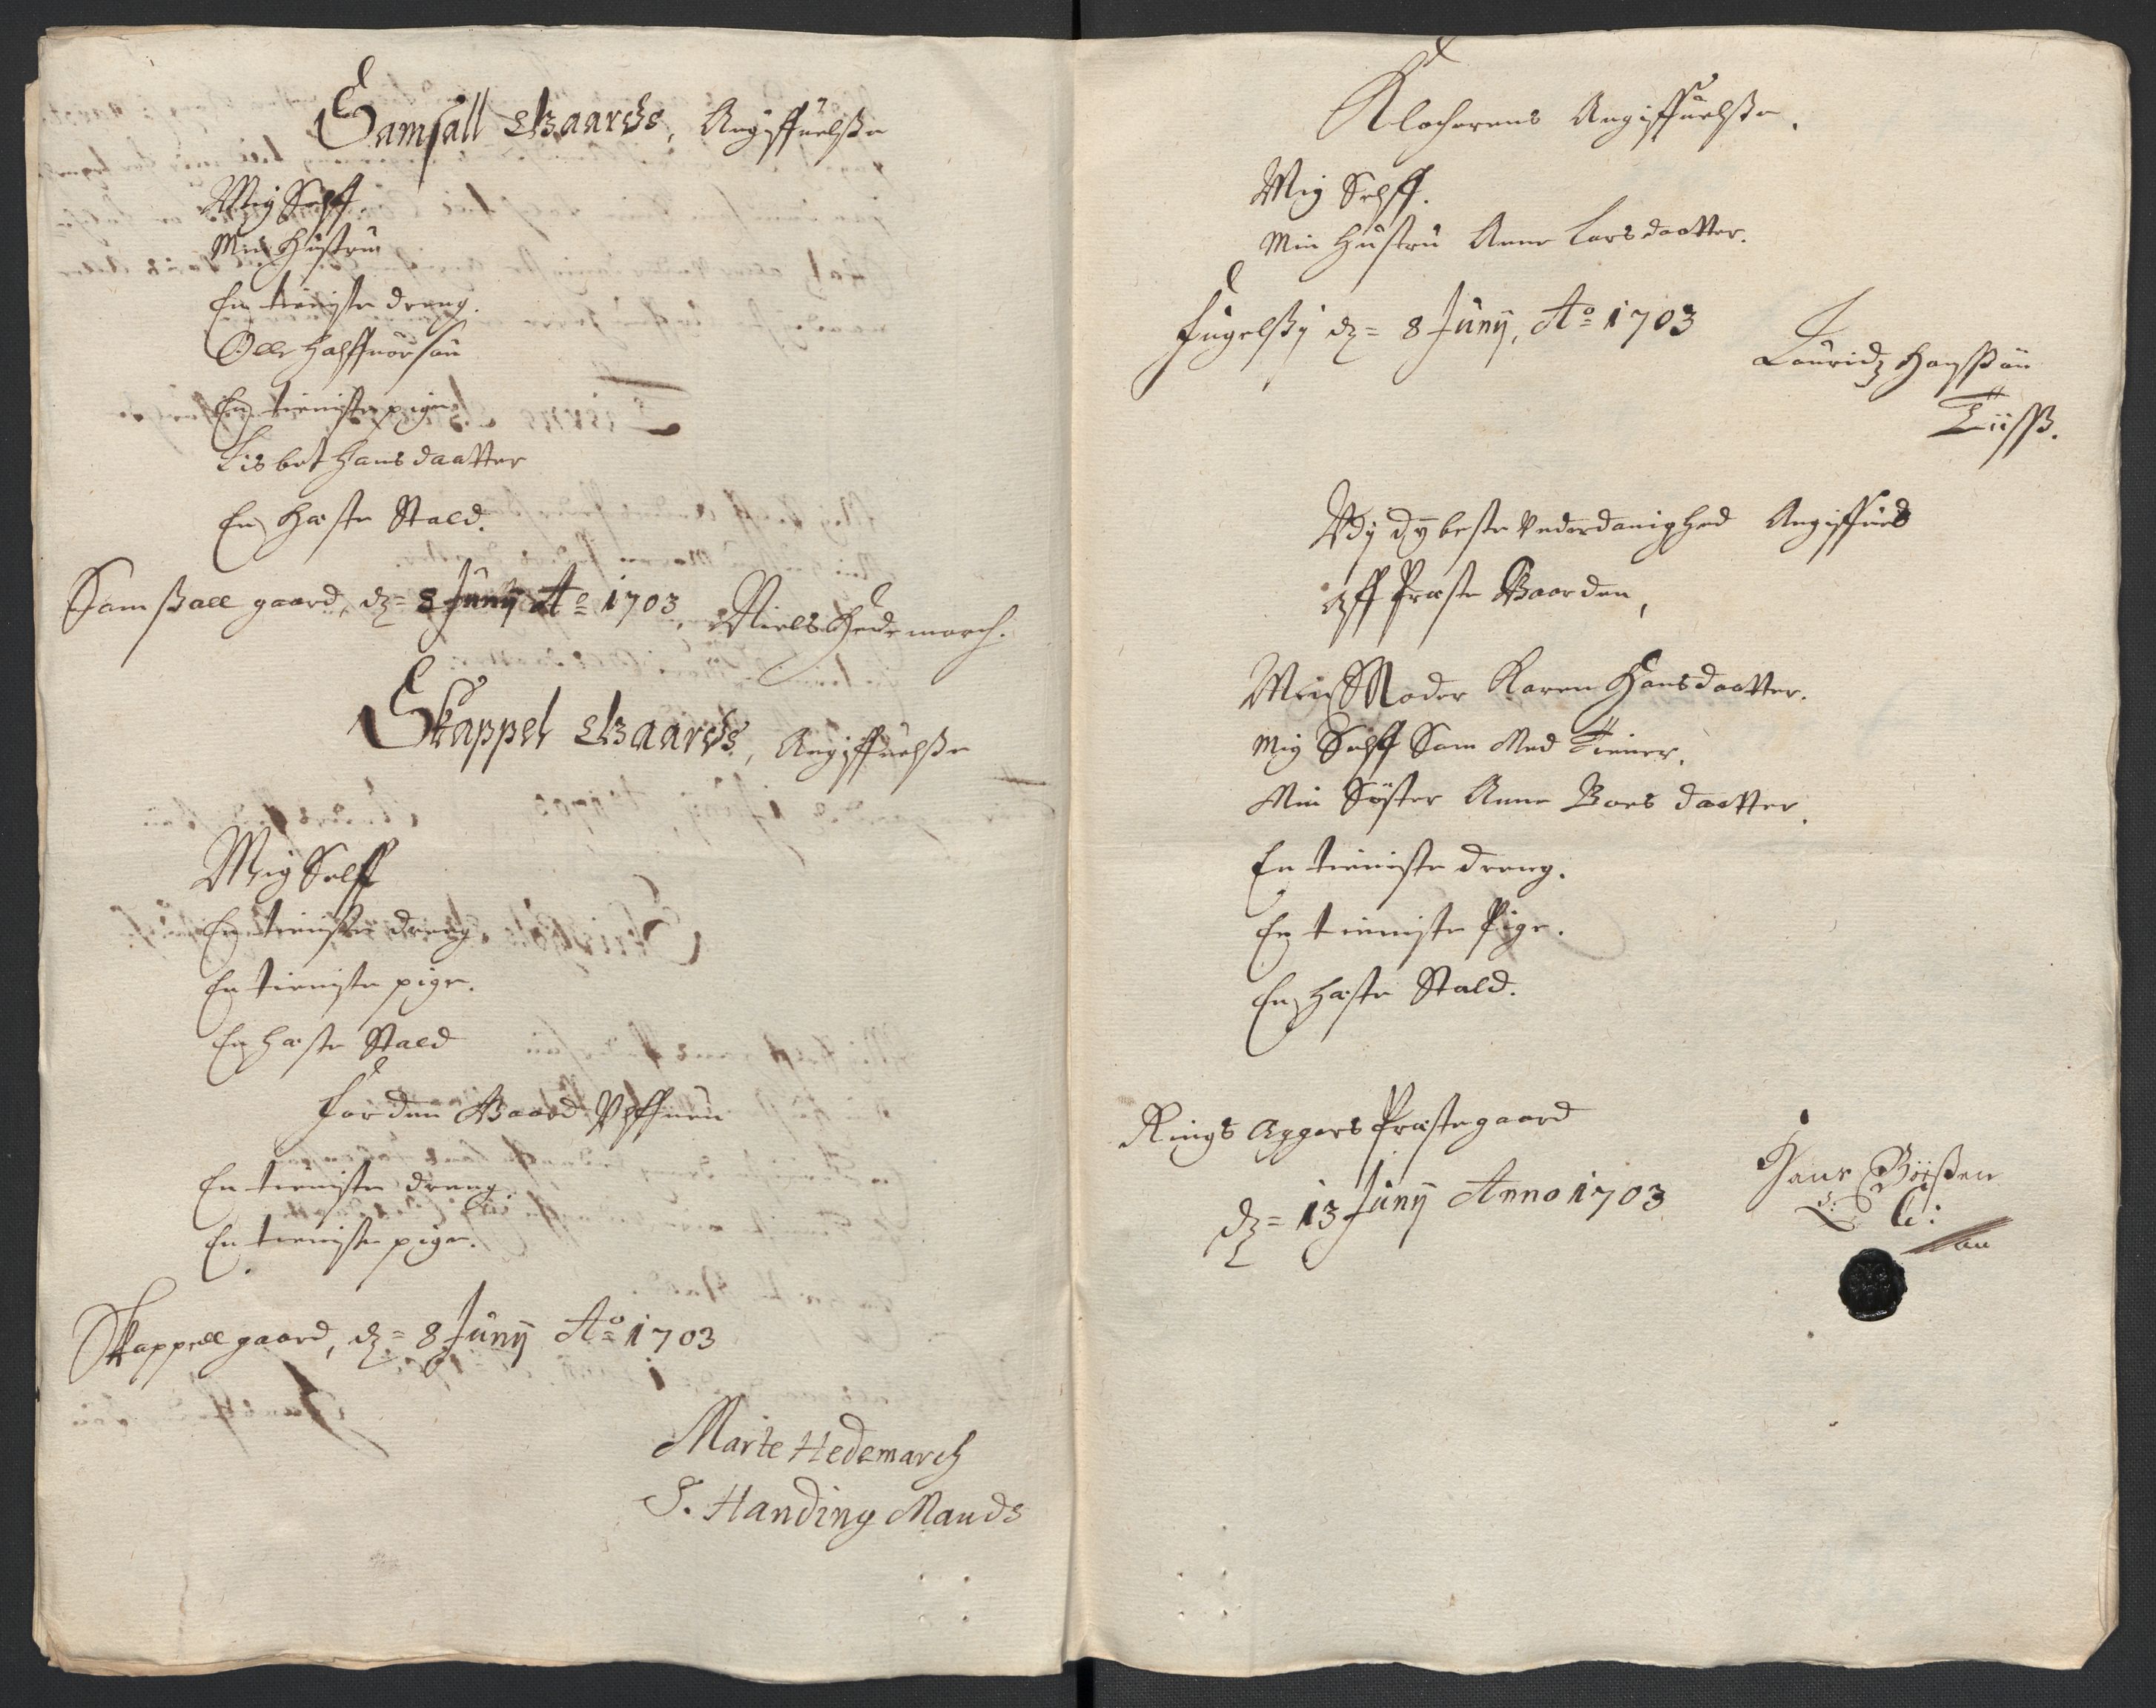 Samsall Gaards, Angiffuelsse
Mig Selff
Min Hustru
En tieniste dreng.
Olle Halffuorsøn
En tieniste pige
Lisbet Hansdaatter
En Hæste Stald.
Samssall gaard, dz= 8 Junÿ Ao 1703, Niels Hedemarch.
Skappel Gaards, Angiffuelsse
Mig Selff
En tieniste dreng
En tieniste pige.
En hæste Stald
For den Gaard
En tieniste dreng.
En tieniste pige.
Skappell gaard, dz= 8 Junÿ Ao 1703
Marte Hedemarch
S. Handing Mands
Klocherens Angiffuelsse.
Mig Selff.
Min Hustru Anne Larsdaatter.
Fugelsby dz= 8 Junÿ, Ao 1703
Louridz Hanssøn
Vdj dÿbeste Vnderdanighed Angiffues
aff Præste Gaarden,
Min Moder Karen Hansdaatter.
Mig Selff Som Med Tiener.
Min Søster Anne Boes daatter.
En tieniste dreng.
En tieniste Pige.
En hæste Stald.
Rings Aggers Præstegaard
dz= 13 Junÿ Anno 1703
Hans